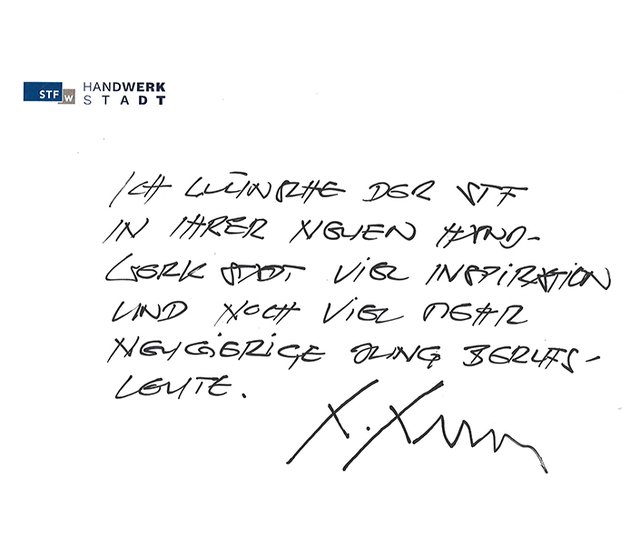 STFW HANDWERK
STADT
ICH WÜNSCHE DER STF
IN IHRER NEUEN HAND-
WERK STADT VIEL INSPIRATION
UND NOCH VIEL MEHR
NEUGIERIGE JUNG BERUFS-
LEUTE.